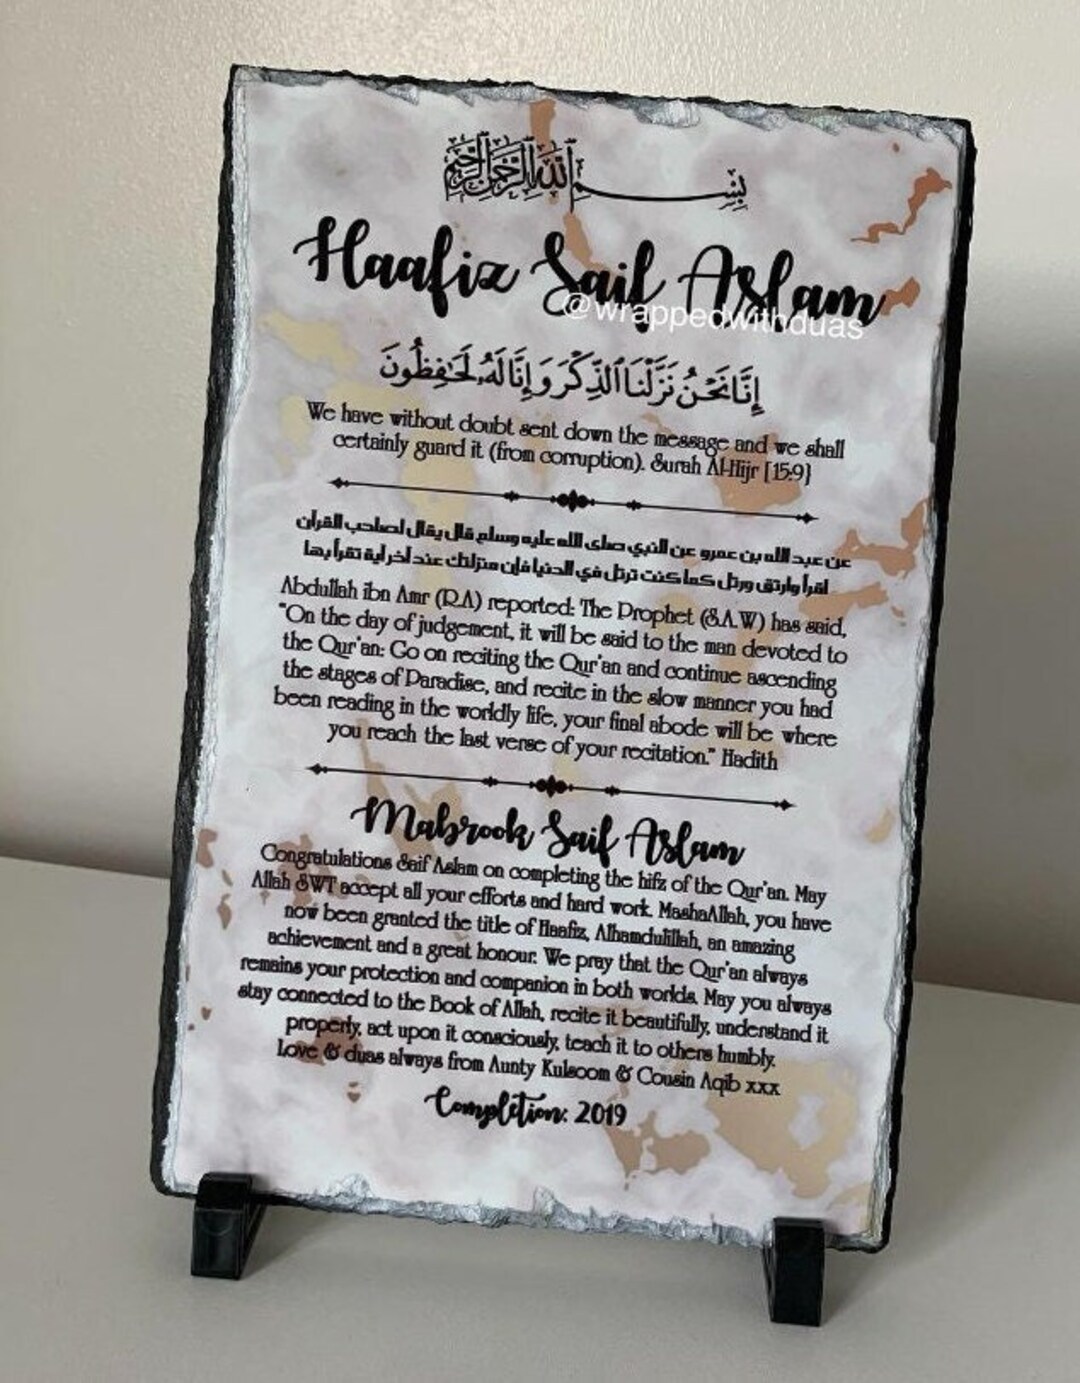 بسم الله الرحمن الرحيم
Haafiz Saif Aslam
@wrappedwithduas
إِنَّا نَحْنُ نَزَّلْنَا ٱلذِّكْرَ وَإِنَّا لَهُۥ لَحَـٰفِظُونَ
We have without doubt sent down the message and we shall
certainly guard it (from corruption). Surah Al-Hijr [15:9}
عن عبد الله بن عمرو عن النبي صلى الله عليه وسلم قال يقال لصاحب القرآن
اقرأ وارتق ورتل كما كنت ترتل في الدنيا فإن منزلتك عند آخر آية تقرأ بها
Abdullah ibn Amr (R.A) reported: The Prophet (S.A.W) has said,
"On the day of judgement, it will be said to the man devoted to
the Qur'an: Go on reciting the Qur'an and continue ascending
the stages of Paradise, and recite in the slow manner you had
been reading in the worldly life, your final abode will be where
you reach the last verse of your recitation." Hadith
Mabrook Saif Aslam
Congratulations Saif Aslam on completing the hifz of the Qur'an. May
Allah SWT accept all your efforts and hard work. MashaAllah, you have
now been granted the title of Haafiz, Alhamdulillah, an amazing
achievement and a great honour. We pray that the Qur'an always
remains your protection and companion in both worlds. May you always
stay connected to the Book of Allah, recite it beautifully, understand it
properly, act upon it consciously, teach it to others humbly.
Love & duas always from Aunty Kulsoom & Cousin Aqib xxx
Completion: 2019